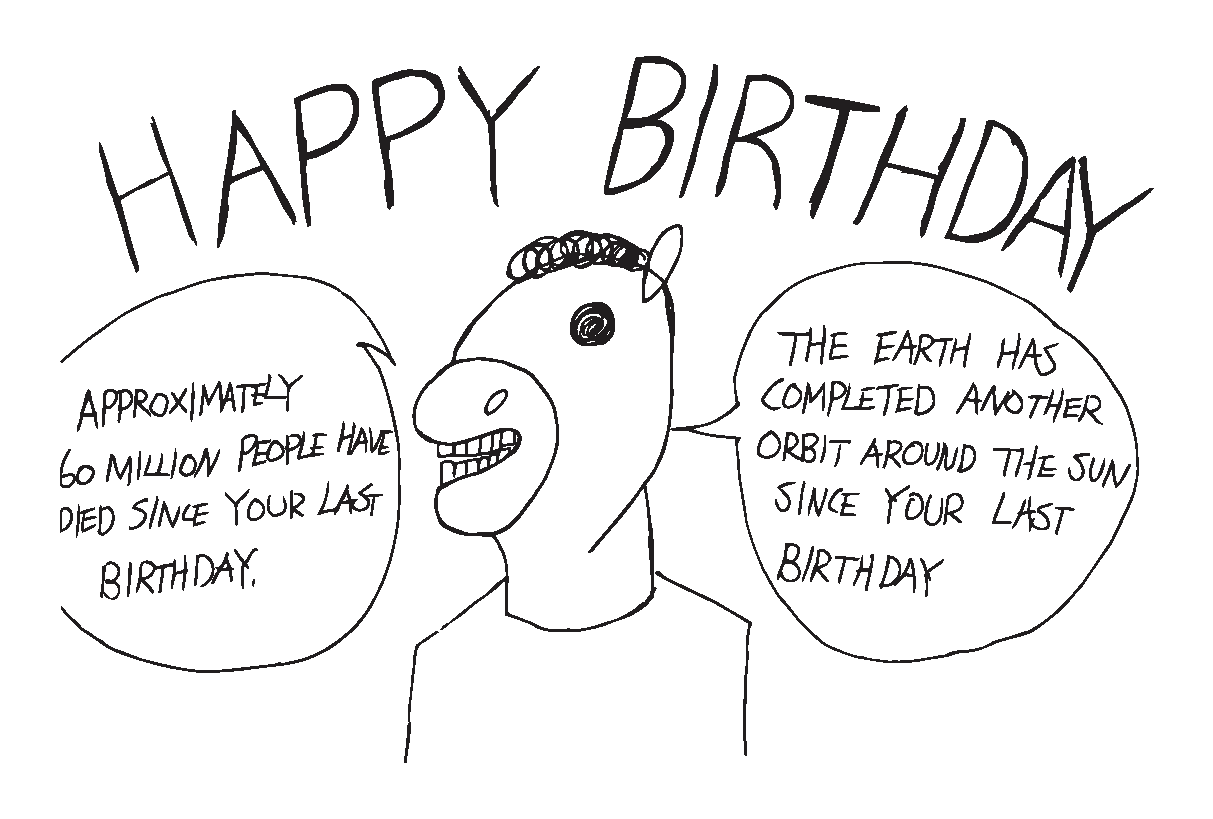 HAPPY BIRTHDAY
APPROXIMATELY
60 MILLION PEOPLE HAVE
DIED SINCE YOUR LAST
BIRTHDAY.
THE EARTH HAS
COMPLETED ANOTHER
ORBIT AROUND THE SUN
SINCE YOUR LAST
BIRTHDAY